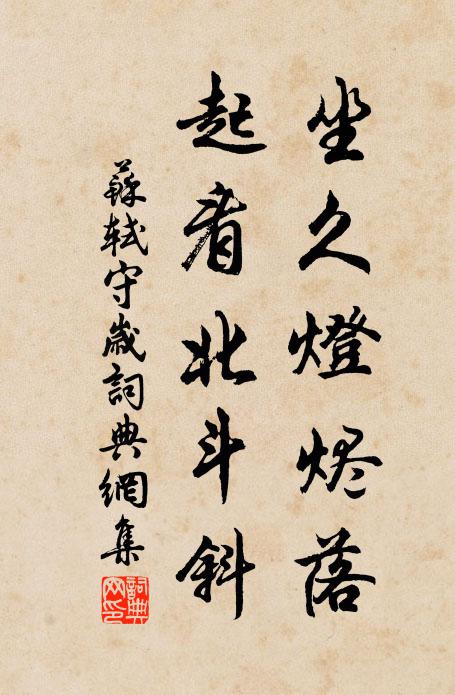 坐久燈烬落
起看北斗斜
蘇軾守歲詞典網集
詞典
网印